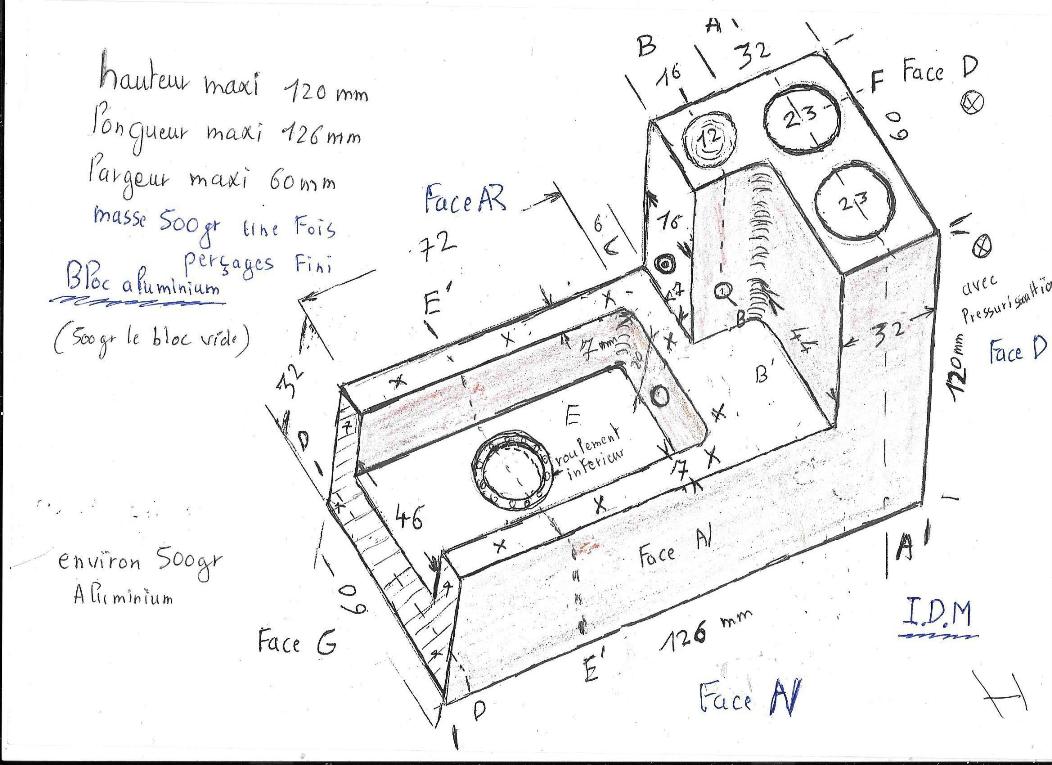 hauteur maxi 120 mm
longueur maxi 126 mm
largeur maxi 60 mm
masse 500gr une Fois
perçages Fini
Bloc aluminium
(500gr le bloc vide)
B
A'
16
32
F Face D
60
12
23
23
Face AR
72
6
16
E'
7
B
44
32
avec
Face D
120 mm
32
D
7
7mm
E
B'
roulement
intérieur
7
46
environ 500gr
Aluminium
60
Face G
Face AV
A'
I.D.M
126 mm
E'
Face AV
D
H